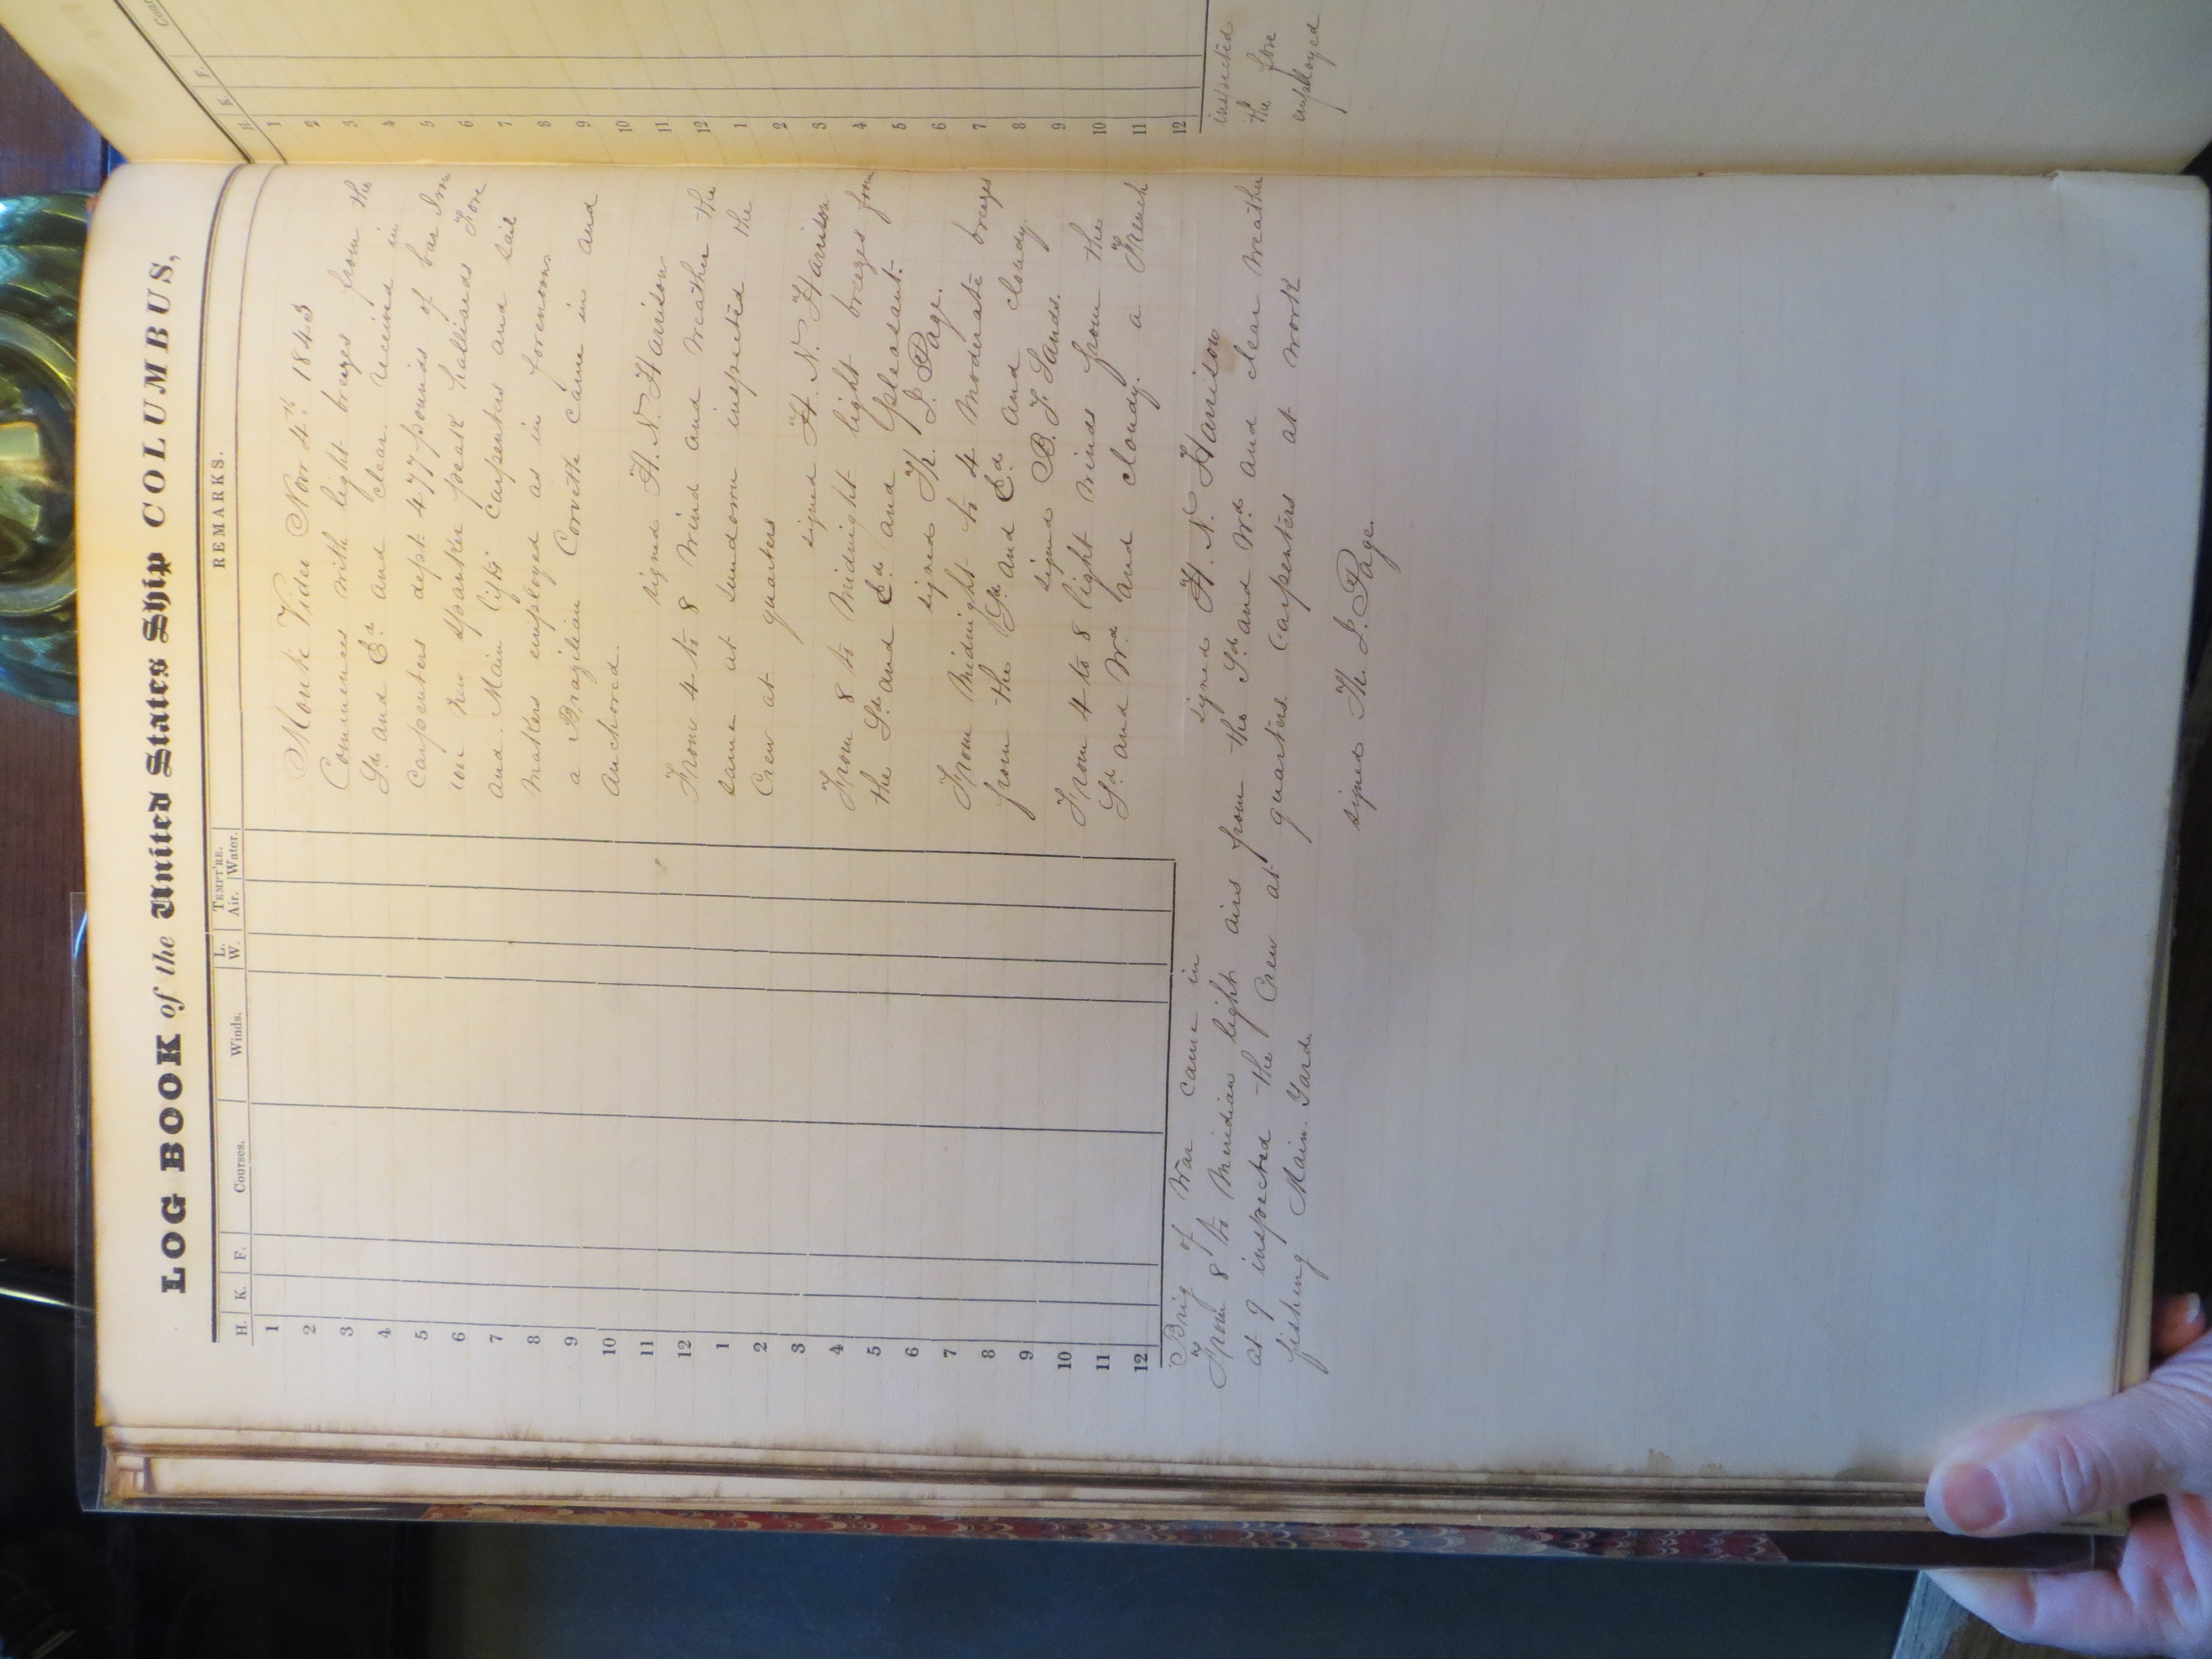 LOG BOOK of the United States Ship COLUMBUS,
H. K. F. Courses. Winds. L. W. TEMPT'RE. Air. Water. REMARKS.
1
2
3
4
5
6
7
8
9
10
11
12
1
2
3
4
5
6
7
8
9
10
11
12
Monte Video Nov 4th 1843
Commences with light breezes from the
Sd and Ed and clear. Received in
Carpenters dept 477 pounds of bar Iron
new Spanker peak halliards Fore
and Main lifts Carpenters and sail
makers employed as in forenoon
a Brazilian Corvette came in and
anchored.
signed H. N. Harrison
From 4 to 8 Wind and Weather the
same at Sundown inspected the
Crew at quarters
signed H. N. Harrison
From 8 to Midnight light breezes from
the Sd and Ed and pleasant.
signed Th. J. Page.
From Midnight to 4 Moderate breezes
from the Sd and Ed and cloudy
signed B. F. Sands.
From 4 to 8 light winds from the
Sd and Wd and cloudy. a French
Brig of War came in
signed H. N. Harrison
From 8 to Meridian light airs from the Sd and Wd and clear Weather
at 9 inspected the Crew at quarters. Carpenters at work
fishing Main Yard.
signed Th. J. Page.
H. K. F.
1
2
3
4
5
6
7
8
9
10
11
12
1
2
3
4
5
6
7
8
9
10
11
12
inspected
the fore
employed